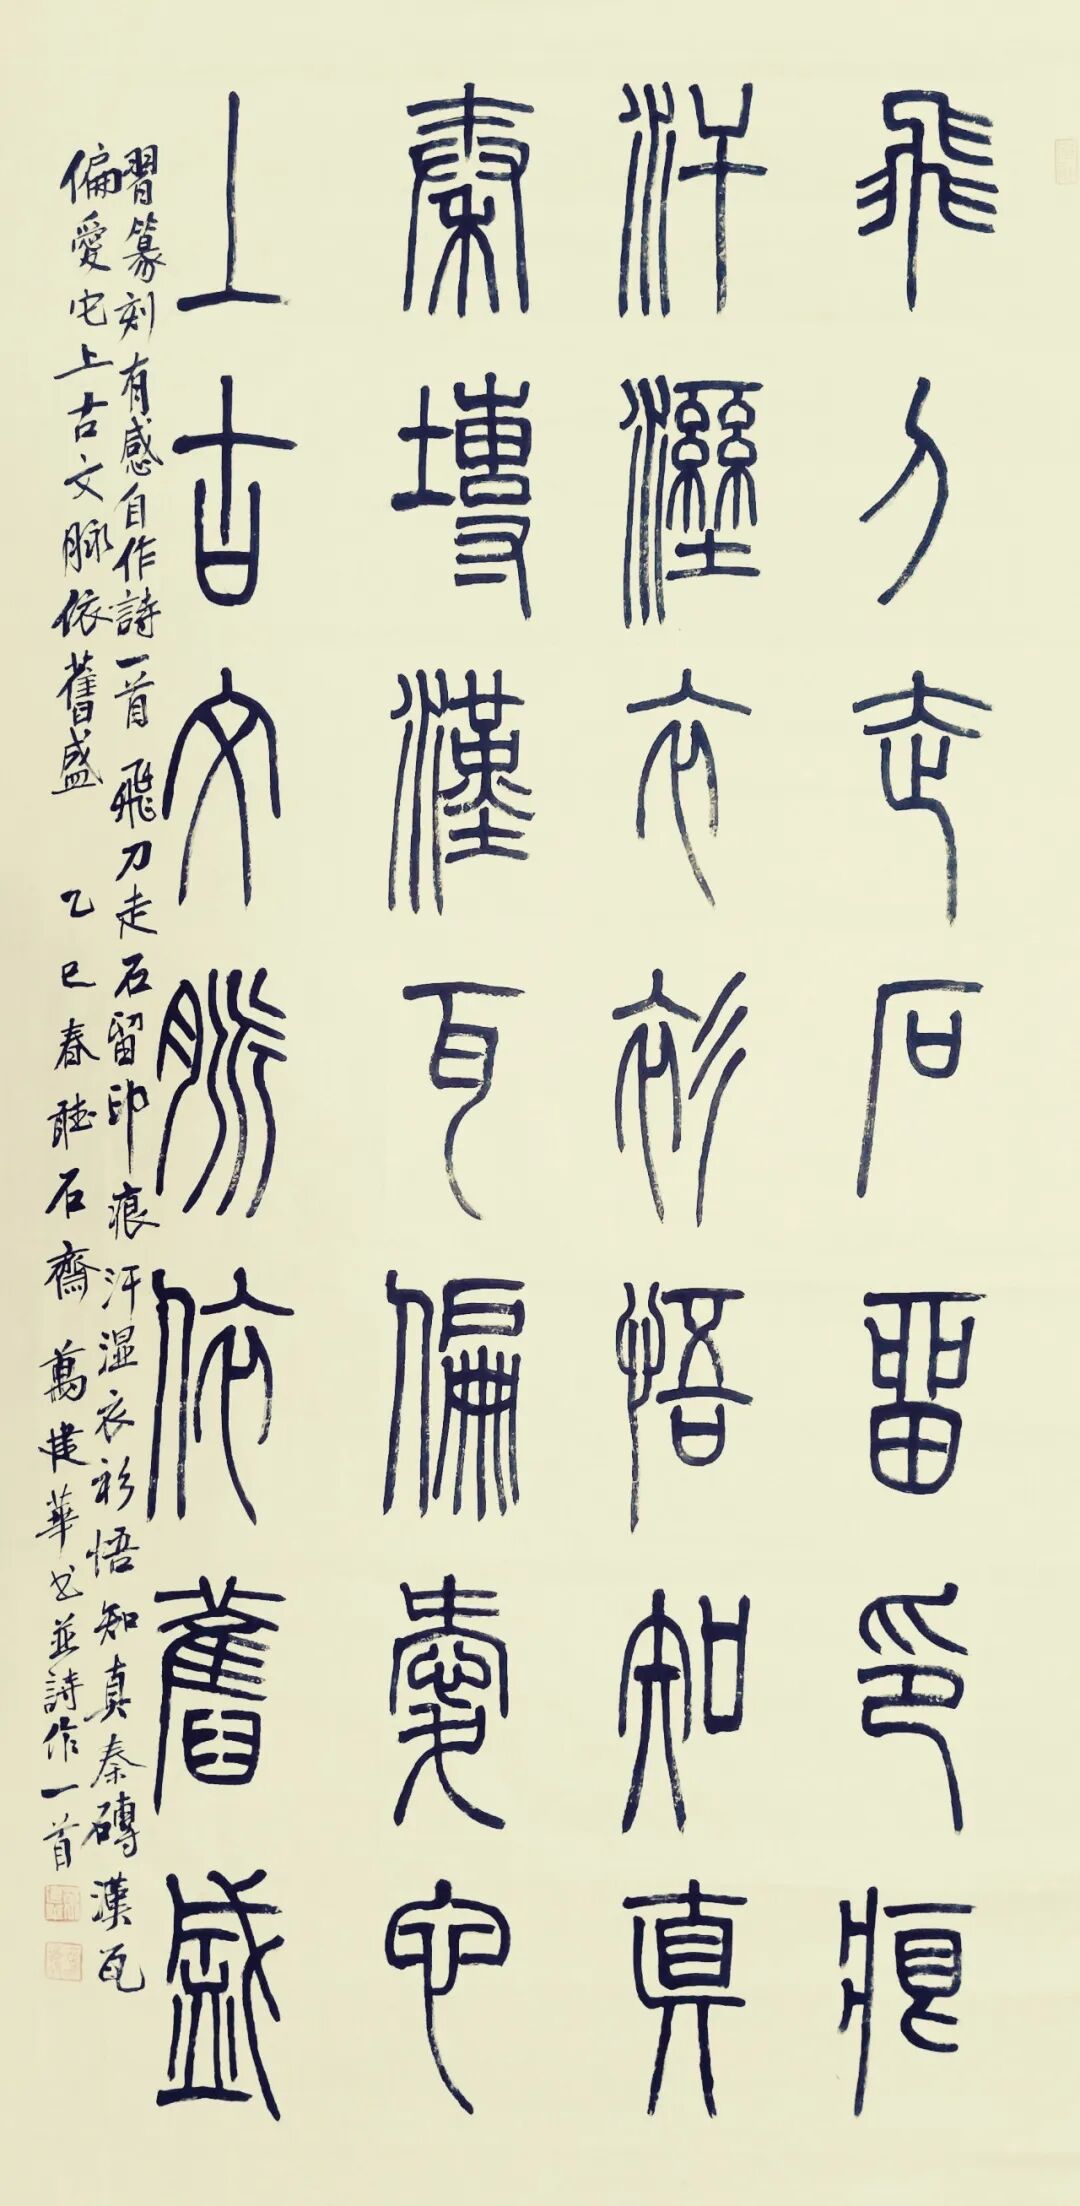 飛刀走石留印痕
汗溼衣衫悟知真
秦塼漢瓦偏愛它
上古文脈依舊盛
習篆刻有感自作詩一首 飛刀走石留印痕汗湿衣衫悟知真秦磚漢瓦
偏愛它上古文脉依舊盛 乙巳春聽石齋 萬建華书並詩作一首